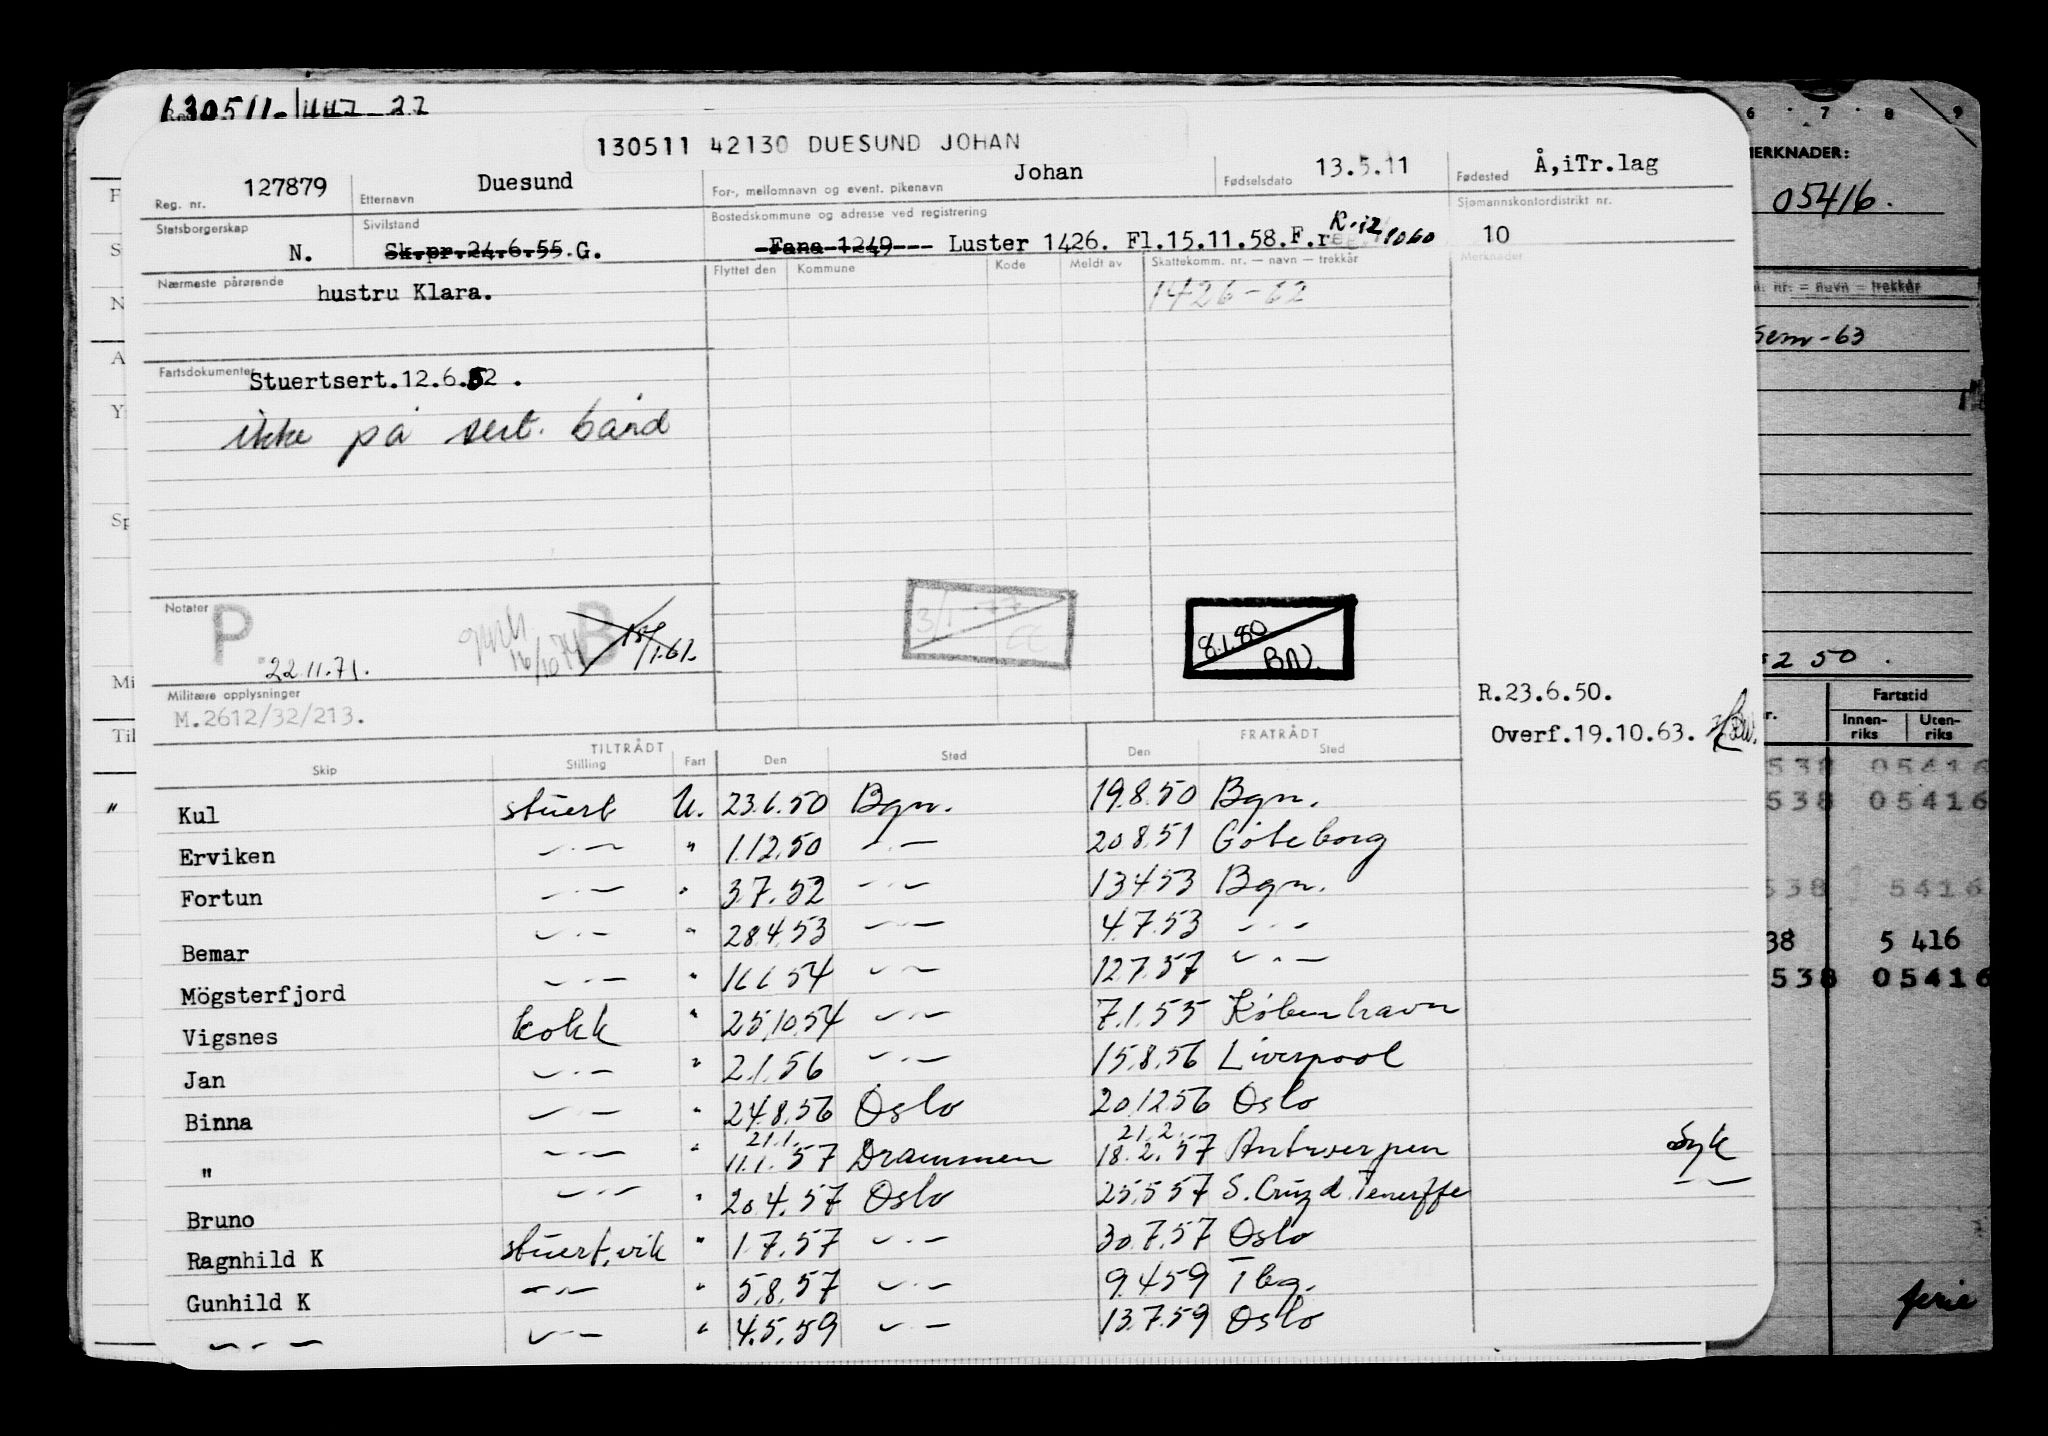 130511-447-27
130511 42130 DUESUND JOHAN
Reg. nr. 127879 Etternavn Duesund For-, mellomnavn og event. pikenavn Johan Fødselsdato 13.5.11 Fødested Å,iTr.lag
Statsborgerskap N. Sivilstand Sk.pr.24.6.55.G. Bostedskommune og adresse ved registrering Fana 1249 Luster 1426. Fl.15.11.58.F.r Sjømannskontordistrikt nr. 10
Nærmeste pårørende hustru Klara. Flyttet den Kommune Kode Meldt av Skattekomm. nr. — navn — trekkår Merknader
1426-62
Fartsdokumenter Stuertsert.12.6.52.
ikke på sert. bånd
Notater P B
22.11.71.
16/10 74
1.61.
3/1-77
8.1.80
BN.
Militære opplysninger
M.2612/32/213.
R.23.6.50.
Overf.19.10.63.
TILTRÅDT FRATRÅDT
Skip Stilling Fart Den Sted Den Sted
Kul stuert U. 23.6.50 Bgn. 19.8.50 Bgn.
Erviken —"— " 1.12.50 —"— 20.8.51 Göteborg
Fortun —"— " 3.7.52 —"— 13.4.53 Bgn.
Bemar —"— " 28.4.53 —"— 4.7.53 —"—
Mögsterfjord —"— " —"— 12.7.57 —"—
Vigsnes kokk " 25.10.54 —"— 7.1.55 København
Jan —"— " 2.1.56 —"— 15.8.56 Liverpool
Binna —"— " 24.8.56 Oslo 20.12.56 Oslo
21.1. 21.2.
" —"— " 11.1.57 Drammen 18.2.57 Antwerpen Syk
Bruno —"— " 20.4.57 Oslo 25.5.57 S. Cruz d. Teneriffe —"—
Ragnhild K stuert, vik " 1.7.57 —"— 30.7.57 Oslo
Gunhild K —"— " 5.8.57 —"— 9.4.59 Tbg.
—"— —"— " 4.5.59 —"— 13.7.59 Oslo
6 7 8 9
MERKNADER:
05416.
nr. = navn = trekkår
Sem-63
250.
Fartstid
Innen-riks Uten-riks
538 05416
538 05416
538 5416
38 5 416
538 05416
ferie